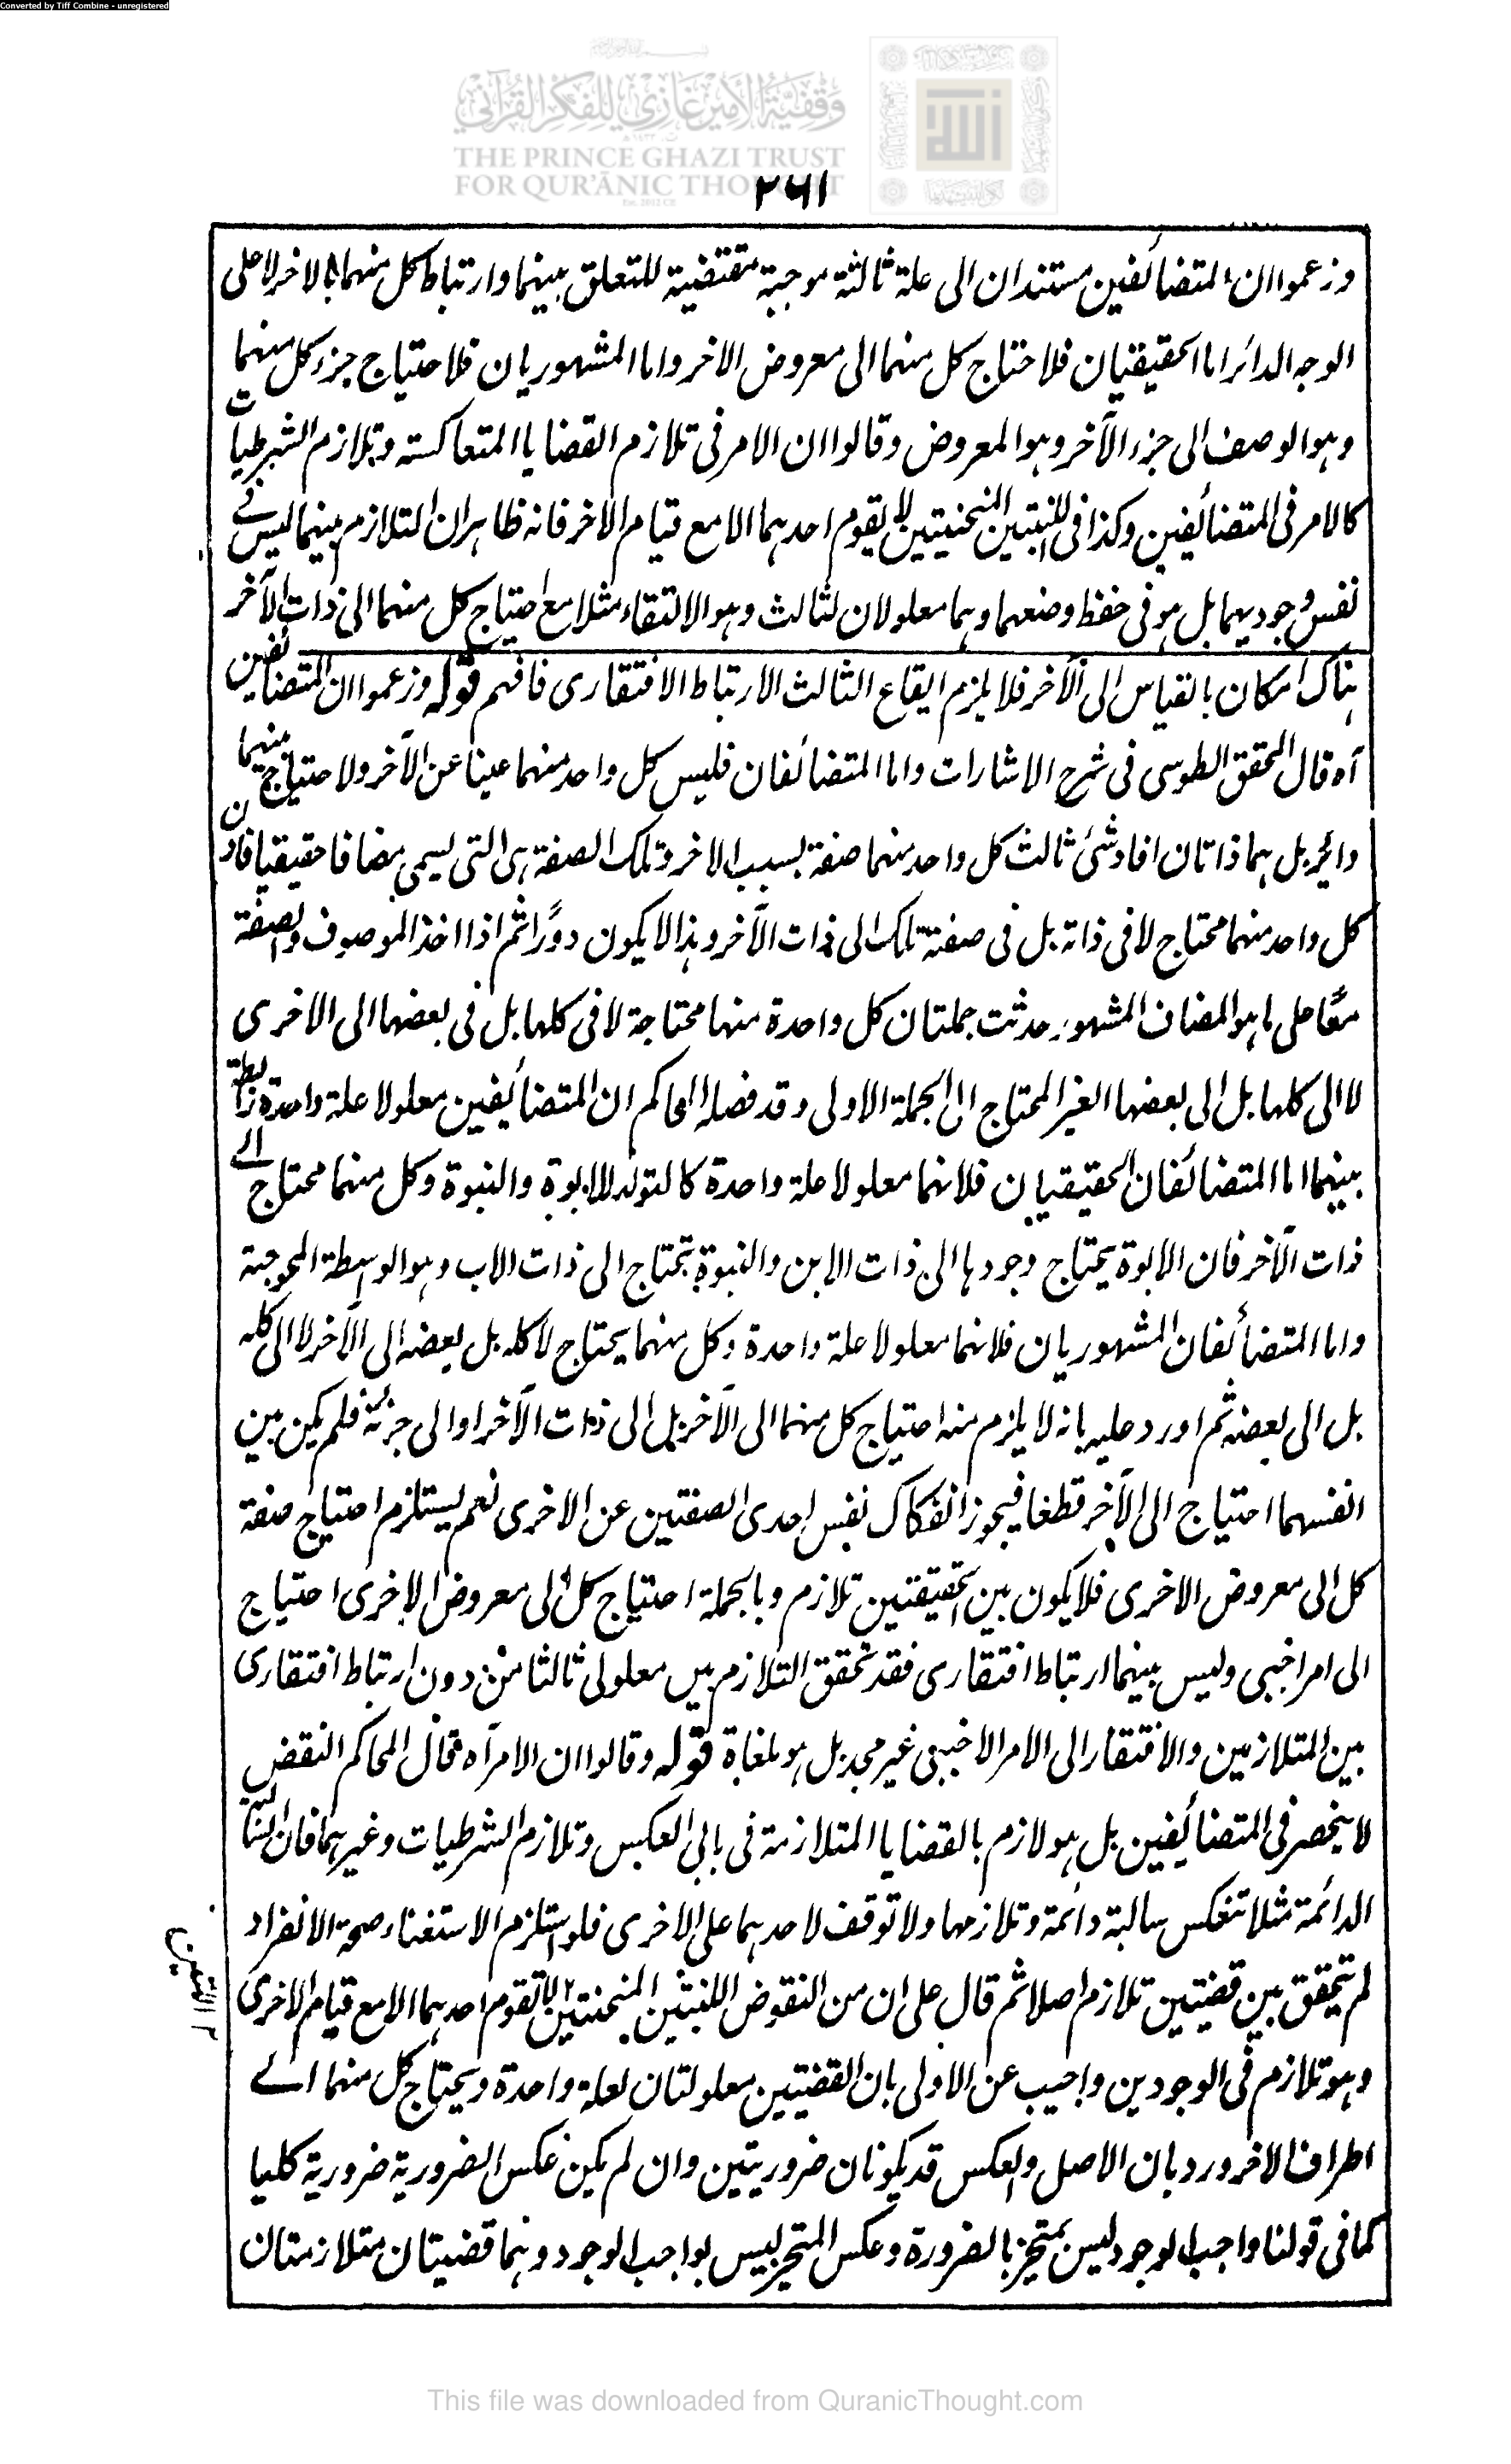 Converted by Tiff Combine - unregistered
وقفية الأمير غازي للفكر القرآني
THE PRINCE GHAZI TRUST
FOR QUR'ĀNIC THOUGHT
٢٦١
وزعموا ان المتضائفين مستندان الى علة ثالثة موجبة مقتضية للتعلق بينهما وارتباط كل منهما بالاخر لا على
الوجه الدائر اما الحقيقيان فلاحتياج كل منهما الى معروض الاخر واما المشهوريان فلاحتياج جزء كل منهما
وهو الوصف الى جزء الآخر وهو المعروض وقالوا ان الامر فى تلازم القضايا المتعاكسة وتلازم الشرطيات
كالامر فى المتضائفين وكذا فى اللبنتين المنحنيتين لا يقوم احدهما الا مع قيام الاخر فانه ظاهر ان التلازم بينهما ليس فے
نفس وجوديهما بل هو فى حفظ وضعهما وهما معلولان لثالث وهو الالتقاء مثلا مع احتياج كل منهما الى ذات الآخر
هناك امكان بالقياس الى الآخر فلا يلزم ايقاع الثالث الارتباط الافتقارى فافهم قوله وزعموا ان المتضائفين
آه قال المحقق الطوسى فى شرح الاشارات واما المتضائفان فليس كل واحد منهما غنيا عن الآخر ولا احتياج منهما
دائر بل هما ذاتان افاد شئ ثالث كل واحد منهما صفة بسبب الاخر وتلك الصفة هى التى يسمى مضافا حقيقيا فاذن
كل واحد منهما محتاج لا فى ذاته بل فى صفته تلك الى ذات الآخر وهذا لا يكون دورًا ثم اذا اخذ الموصوف والصفة
معًا على ما هو المضاف المشهور حدثت جملتان كل واحدة منها محتاجة لا فى كلها بل فى بعضها الى الاخرى
لا الى كلها بل الى بعضها الغير المحتاج الى الجملة الاولى وقد فصله المحاكم ان المتضائفين معلولا علة واحدة رابطة
بينهما اما المتضائفان الحقيقيان فلانهما معلولا علة واحدة كالتولد للابوة والبنوة وكل منهما محتاج الے
ذات الآخر فان الابوة يحتاج وجودها الى ذات الابن والبنوة تحتاج الى ذات الاب وهو الواسطة الموجبة
واما المتضائفان المشهوريان فلانهما معلولا علة واحدة وكل منهما يحتاج لا كله بل بعضه الى الآخر لا الى كله
بل الى بعضه ثم اورد عليه بانه لا يلزم منه احتياج كل منهما الى الآخر بل الى ذات الآخر او الى جزئه فلم يكن بين
انفسهما احتياج الى الآخر قطعا فيجوز انفكاك نفس احدى الصفتين عن الاخرى نعم يستلزم احتياج صفة
كل الى معروض الاخرى فلا يكون بين الحقيقتين تلازم وبالجملة احتياج كل الى معروض الاخرى احتياج
الى امر اجنبى وليس بينهما ارتباط افتقارى فقد تحقق التلازم بين معلولى ثالث من دون ارتباط افتقارى
بين المتلازمين والافتقار الى الامر الاجنبى غير مجد بل هو ملغاة قوله وقالوا ان الامر آه قال المحاكم النقض
لا ينحصر فى المتضائفين بل هو لازم بالقضايا المتلازمة فى بابى العكس وتلازم الشرطيات وغيرهما فان السالبة
الدائمة مثلا تنعكس سالبة دائمة وتلازمها ولا توقف لاحدهما على الاخرى فلو استلزم الاستغناء صحة الانفراد
لم يتحقق بين قضيتين تلازم اصلا ثم قال على ان من النقوض اللبنتين المنحنيتين لا تقوم احدهما الا مع قيام الاخرى
وهو تلازم فى الوجودين واجيب عن الاولى بان القضيتين معلولتان لعلة واحدة ويحتاج كل منهما الے
اطراف الاخر ورد بان الاصل والعكس قد يكونان ضروريتين وان لم يكن عكس الضرورية ضرورية كليا
كما فى قولنا واجب الوجود ليس بمتحيز بالضرورة وعكس المتحيز ليس بواجب الوجود وهما قضيتان متلازمتان
This file was downloaded from QuranicThought.com